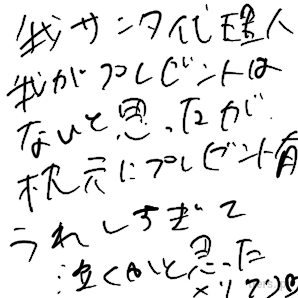 我サンタ代理人
我がプレゼントは
ないと思ったが
枕元にプレゼント有
うれしすぎて
泣くかと思った
メリクリ